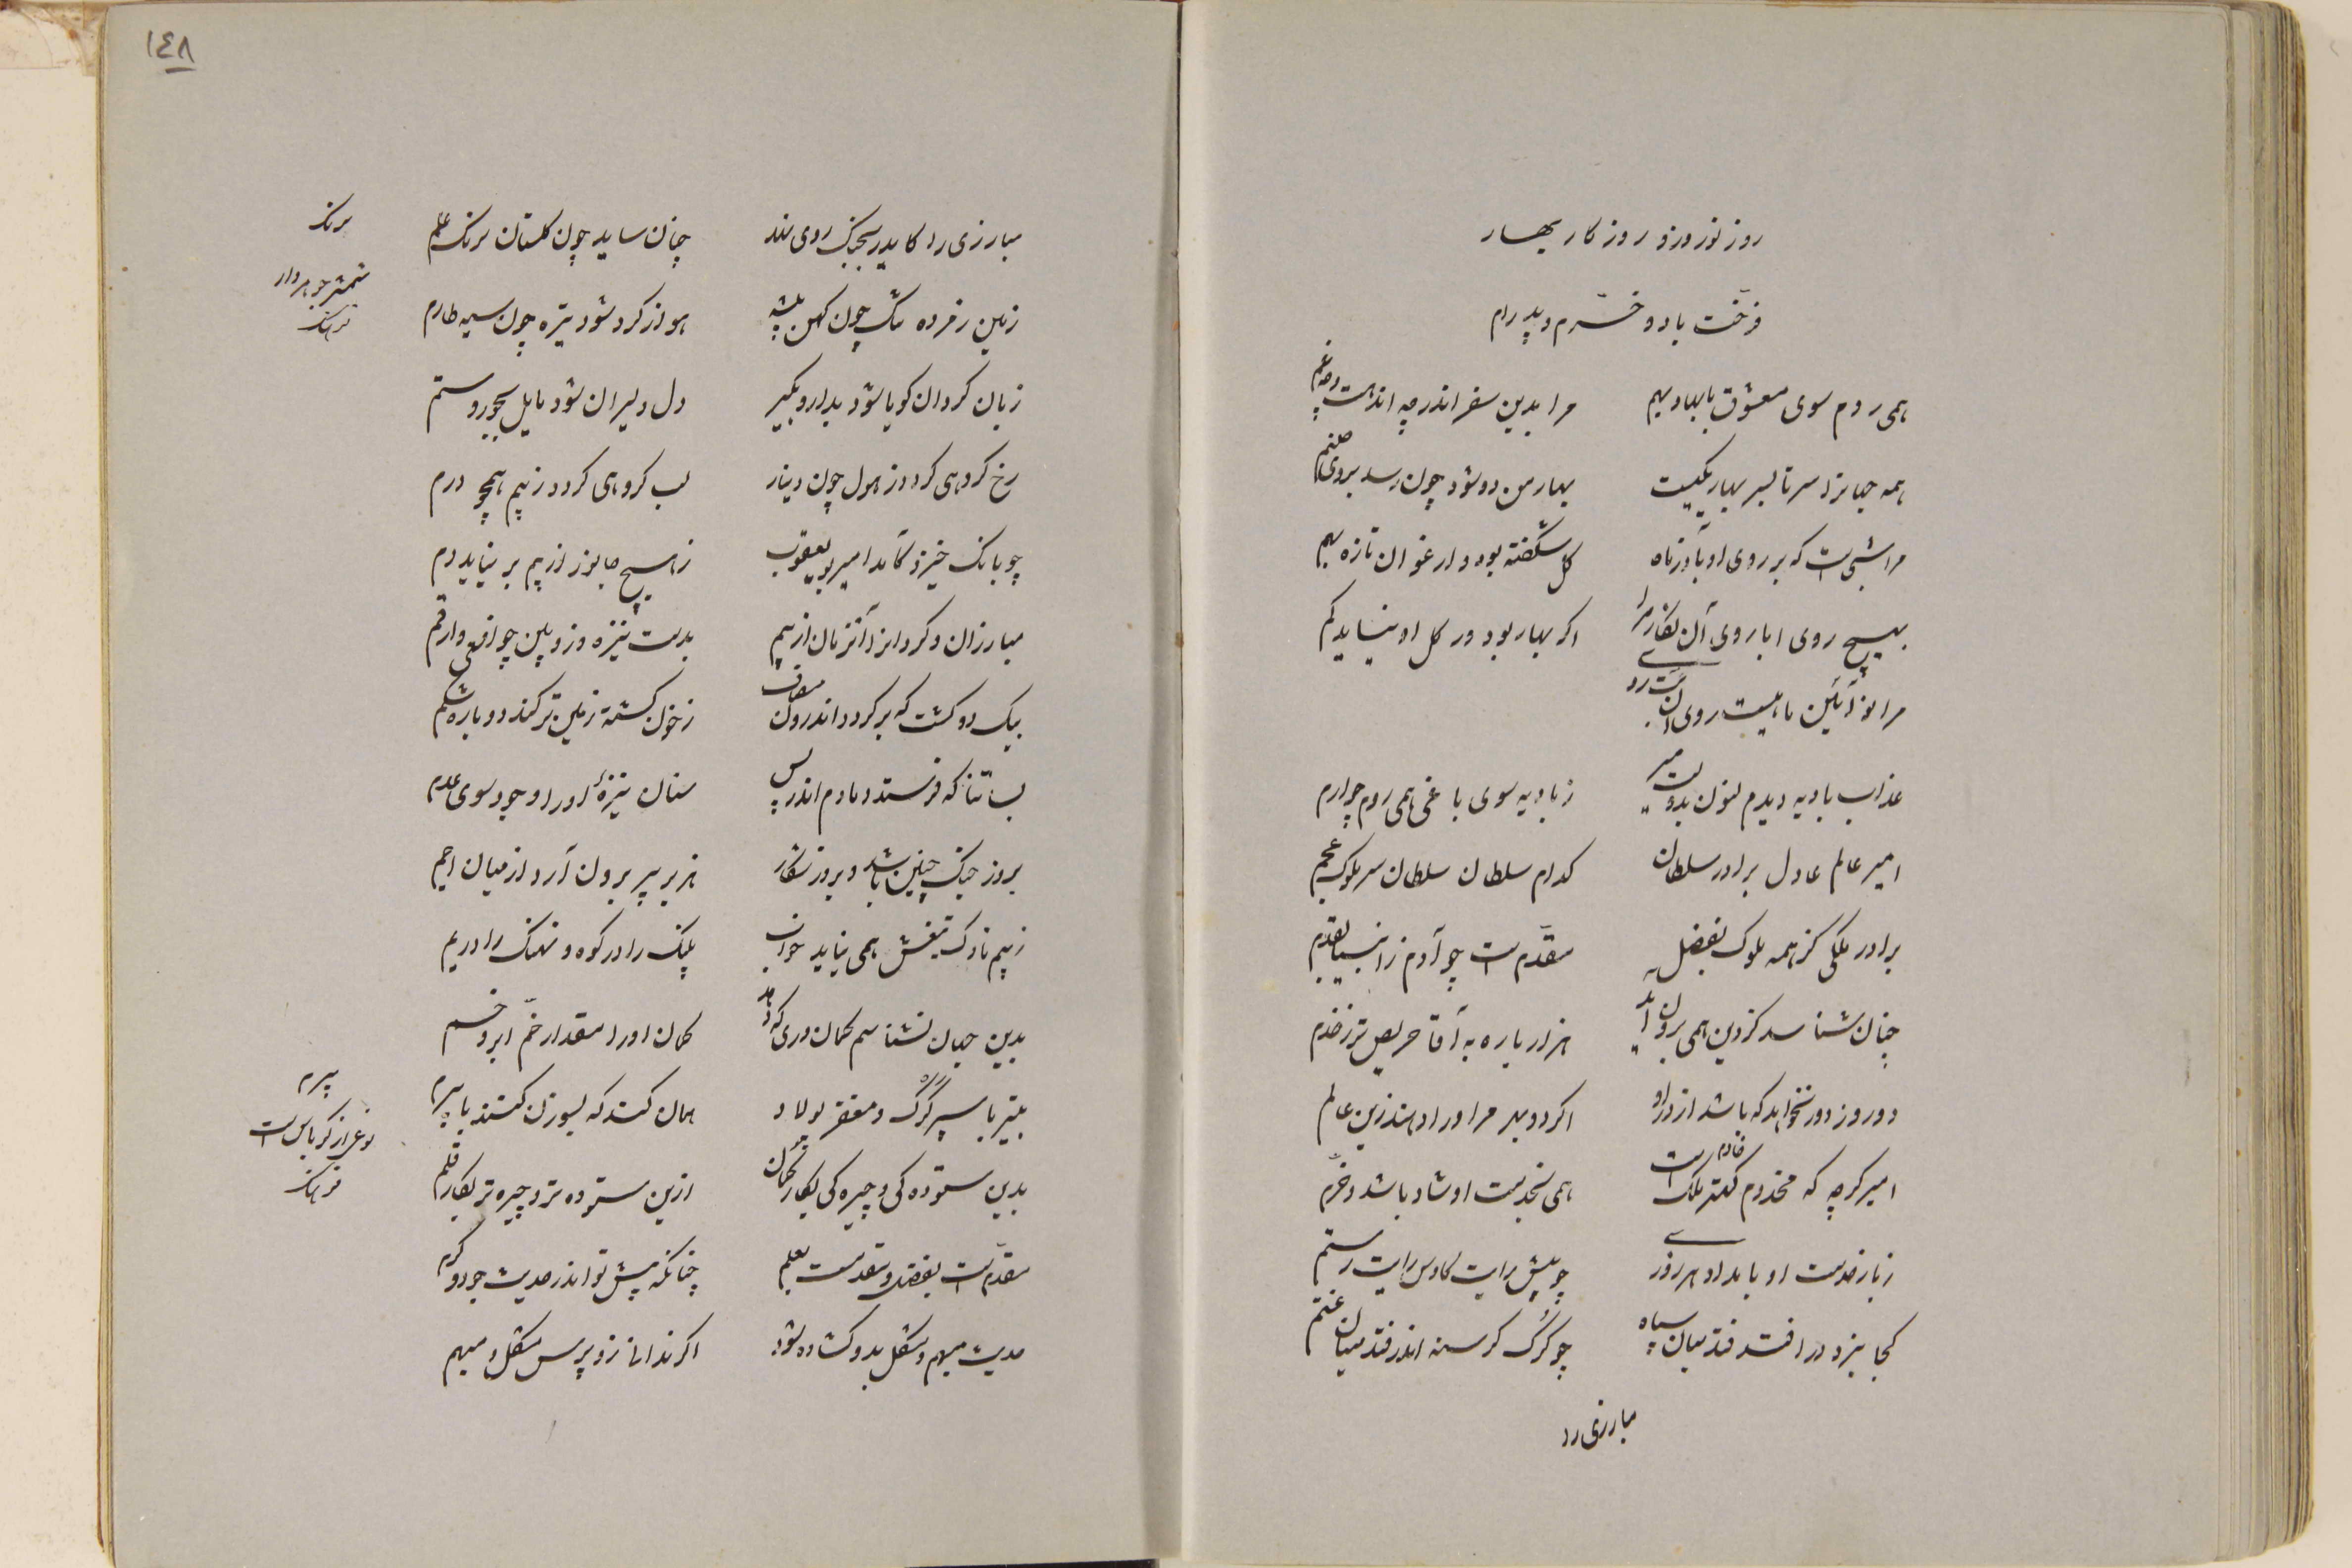 روز نوروز و روزکار بهار
فرّخت باد و خرّم و پدرام
همی روم سوی معشوق با بهار بهم مرا بدین سفر اندر چه اندهست و چه غم
همه جهانرا سر تا بسر بهار یکیست بهار من دو شود چون رسد بروی صنم
مرا بتی است که بر روی او بآذرماه کل شکفته بود و ارغوان تازه بهم
بهیچ روی ابا روی آن نکار مرا اکر بهار بود ور کل او نیاید کم
عذاب بادیه دیدم کنون بدولت میر ز بادیه سوی باغی همی روم چو ارم
امیر عالم عادل برادر سلطان کدام سلطان سلطان سر ملوک عجم
برادر ملکی کز همه ملوک بفضل مقدّم است چو آدم ز انبیا بقدم
چنان شناسد کز دین همی برون آید هزار باره به آقا حریص تر ز خدم
دو روز دور نخواهد که باشد از در او اکر دو بهر مر او را دهند زین عالم
امیر کرچه که مخدوم کهتر ملک است خادم همی بخدمت او شاد باشد و خرّم
ز بار خدمت او بامداد هر روزی چو پیش رایت کاوس رایت رستم
کجا نبرد در افتد فتد میان سپاه چو کرک کرسنه اندر فتد میان غنم
مبارزی را
١٤٨
مبارزی را کاید بجنک روی نهد چنان نماید چون کلستان برنک علم
برنک
زمین ز مرده شود چون کهن بیشه هوا ز کرد شود تیره چون سیه طارم
شمشیر جوهردار
فرهنک
زبان کردان کویا شود بدار و بکیر دل دلیران شود مایل بجور و ستم
رخ کروهی کردد ز هول چون دینار لب کروهی کردد ز بیم همچو درم
چو بانک خیزد کآمد امیر بویعقوب ز هیچ جانور از بیم بر نیاید دم
مبارزان و کردانرا آنزمان از بیم بدست نیزه و زوپین چو افعی و ارقم
بیک دو کشت که بر کردد اندرون مصاف ز خون کشته زمین تر کند دوباره شکم
بسا تنا که فرستد دمادم اندر پس سنان نیزهٔ او را وجود سوی عدم
بروز جنک چنین باشد و بروز شکار هزبر بیر برون آرد از میان اجم
ز بیم ناوک تیغش همی نیاید خواب پلنک را در کوه و نهنک را در یم
بدین جهان نشناسم کمان وری که دهد کمان او را مقدار خمّ ابرو خم
بتیر با سپر کرک و مغفر پولاد همان کند که بسوزن کنند با بیرم
بیرم
نوعی از کرباس است
فرهنک
بدین ستوده کی و چیره کی بکار کمان ازین ستوده تر و چیره تر بکار قلم
مقدّم است بفضل و مقدمست بعلم چنانکه پیش تو اندر حدیث جود و کرم
حدیث مبهم و مشکل بدو کشاده شود اکر ندانی زو پرس مشکل و مبهم